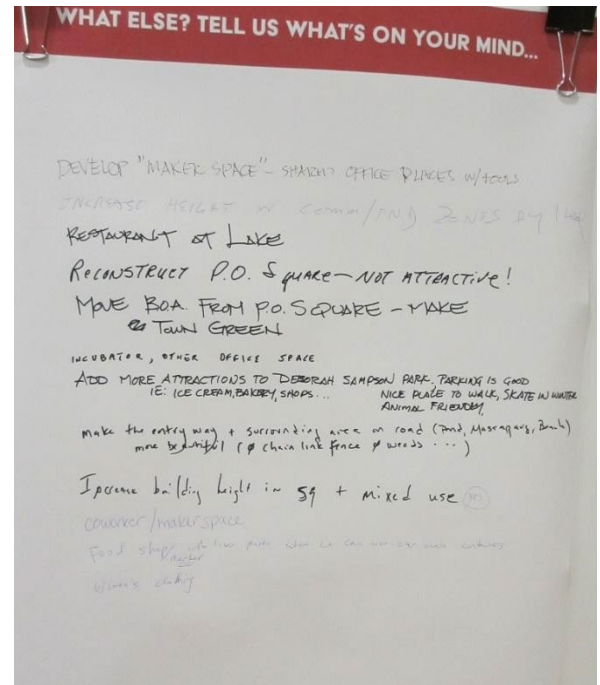 WHAT ELSE? TELL US WHAT'S ON YOUR MIND...
DEVELOP "MAKER SPACE" - SHARED OFFICE PLACES W/TOOLS
INCREASE HEIGHT IN COMM/IND ZONES BY
RESTAURANT AT LAKE
RECONSTRUCT P.O. Square - NOT ATTRACTIVE!
MOVE B.O.A. FROM P.O. SQUARE - MAKE
TOWN GREEN
INCUBATOR, OTHER OFFICE SPACE
ADD MORE ATTRACTIONS TO DEBORAH SAMPSON PARK, PARKING IS GOOD
IE: ICE CREAM, BAKERY, SHOPS... NICE PLACE TO WALK, SKATE IN WINTER
ANIMAL FRIENDLY
make the entry way + surrounding area on road (Pond, Massapoag, Beach)
more beautiful (∅ chain link fence ∅ weeds ...)
Increase building height in sq + mixed use
coworker/makerspace
Food shop
market
women's clothing